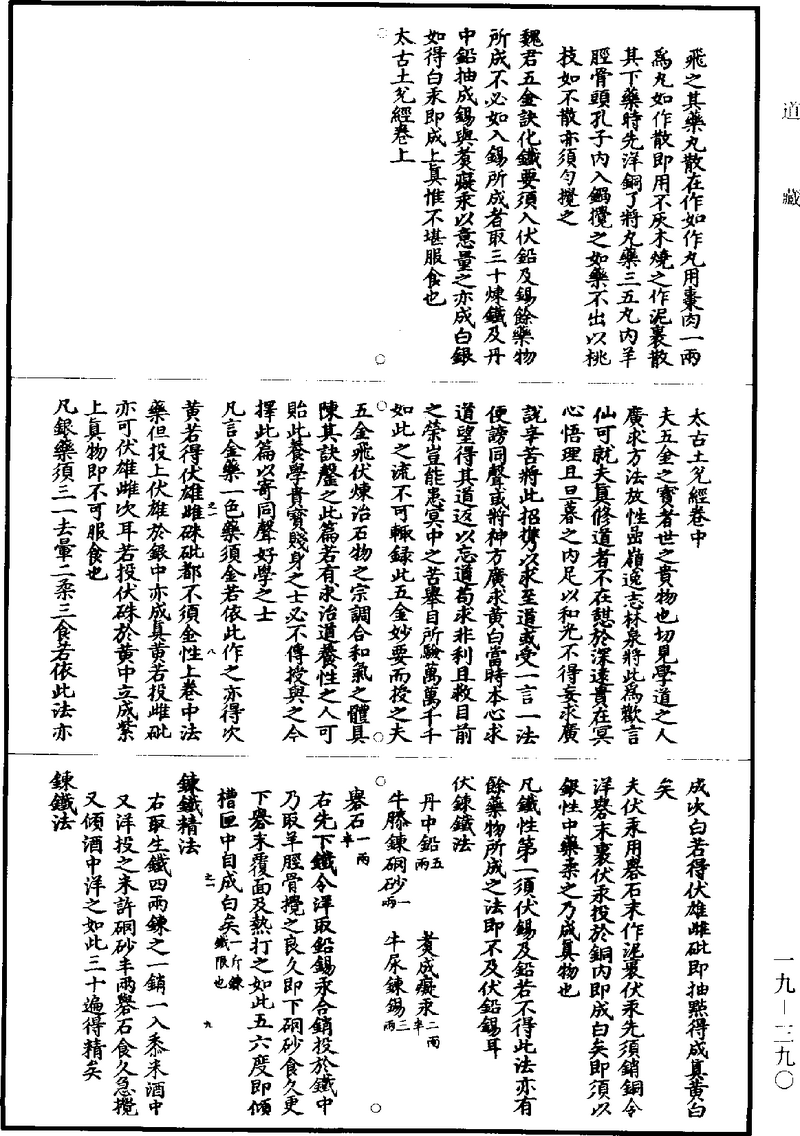 道藏
飛之其藥丸散在作如作丸用棗肉一兩
爲丸如作散即用不灰木燒之作泥裹散
其下藥時先洋銅了將丸藥三五丸內羊
脛骨頭孔子內入鍋攪之如藥不出以桃
技如不散亦須勻攪之
魏君五金訣化鐵要須入伏鉛及錫餘藥物
所成不必如入錫所成者取三十煉鐵及丹
中鉛抽成錫與黃癡汞以意量之亦成白銀
如得白汞即成上真惟不堪服食也
太古土兌經卷上
太古土兌經卷中
夫五金之寶者世之貴物也切見學道之人
廣求方法放性嵒嶺逸志林泉將此爲歡言
仙可就夫真修道者不在諶於深遠貴在冥
心悟理且旦暮之內足以和光不得妄求廣
說辛苦將此招携以求至道或受一言一法
便謗同聲或將神方廣求黃白當時本心求
道望得其道返以忘道苟求非利且救目前
之榮豈能患冥中之苦舉目所驗萬萬千千
如此之流不可輙録此五金妙要而授之夫
五金飛伏煉治石物之宗調合和氣之體具
陳其訣鑿之此篇若有求治道養性之人可
貽此養學貴寶賤身之士必不傳授與之今
擇此篇以寄同聲好學之士
凡言金藥一色藥須金若依此作之亦得次
黃若得伏雄雌硃砒都不須金性上卷中法
藥但投上伏雄於銀中亦成真黃若投雌砒
亦可伏雄雌次耳若投伏硃於黃中立成紫
上真物即不可服食也
凡銀藥須三一去暈二柔三食若依此法亦
之一
八
成次白若得伏雄雌砒即抽點得成真黃白
矣
夫伏汞用礜石末作泥裹伏汞先須銷銅令
洋礜末裹伏汞投於銅內即成白矣即須以
銀性中藥柔之乃成真物也
凡鐵性第一須伏錫及鉛若不得此法亦有
餘藥物所成之法即不及伏鉛錫耳
伏鍊鐵法
丹中鉛五兩 黃成癡汞二兩半
牛膝鍊硇砂一兩 牛屎鍊錫三兩
礜石一兩半
右先下鐵令洋取鉛錫汞合銷投於鐵中
乃取羊脛骨攪之良久即下硇砂食久更
下礜末覆面及熱打之如此五六度即傾
槽匣中自成白矣一斤鍊鐵限也
鍊鐵精法
右取生鐵四兩鍊之一銷一入黍米酒中
又洋投之末許硇砂半兩礜石食久急攪
又傾酒中洋之如此三十遍得精矣
鍊鐵法
之一
九
一九—三九〇